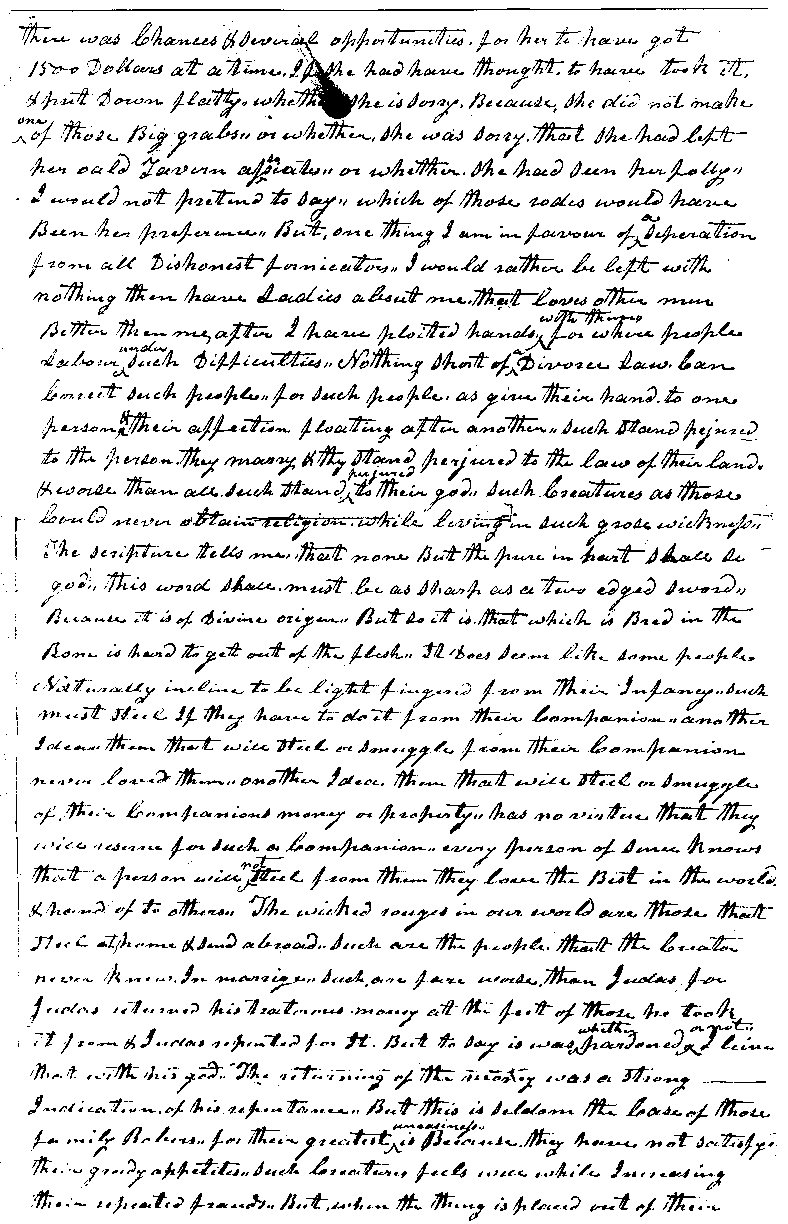 there was Chances & several opportunities. for her to have got
1500 Dollars at a time. If she had have thought. to have took it.
& put Down flatly. whether she is sorry. Because, she did not make
one
of those Big grabs. or whether. she was sorry. that she had left
her oald Tavern or whether. she had seen her folly..
I would not pretend to say.. which of those rodes would have
Been her preference.. But, one thing I am in favour of a Seperation
from all Dishonest fornicators.. I would rather be left with
nothing then have Ladies about me. that loves other men
with theirs
Better then me, after I have ploited hands, for where people
Labour under such Difficulties.. Nothing Short of a Divorce Law. Can
Correct such people.. for such people. as give their hand. to one
person & their affection floating after another.. such Stand pejured
to the person. they marry & thy Stand perjured to the law of their land.
perjured
& worse than all. such Stand to their god. such Creatures as those
Could never obtain religion while loving in such grose wickness..
The scripture tells me. that none But the pure in hart shall se
god.. this word shall. must be as sharp as a two edged sword..
Because it is of Divine origen.. But so it is. that which is Bred in the
Bone is hard to gett out of the flesh.. It Does seem like some people.
Naturally incline to be light fingerd from their Infancy.. such
must Steel If they have to do it from their Companion.. another
Idea.. them that will Steel or smuggle from their Companion
never loved them.. another Idea. them that will steel or smuggle
of, their Companions money or property.. has no virtue that they
will reserve for such a Companion.. every person of sence knows
that a person will not Steel from them they love the Best in the world.
& hand of to others.. The wicked rouges in our world are those that
Steel at home & send abroad. such are the people. that the Creator
never knew. In marrige.. such, are fare worse. than Judas, for
Judas returned his tratorous money att the feet of those he took
whether or not..
it from & Judas repented for It. But to say is was pardoned & I leive
that with his god. The returning of the money was a Strong
Indication, of his repentance.. But this is seldom the Case of those
uneasiness..
family Robers.. for their greatest is Because, they have not satisfy'd
their gredy appetites.. such Creatures feels well while Increasing
their repeated frauds.. But, when the thing is placed out of their